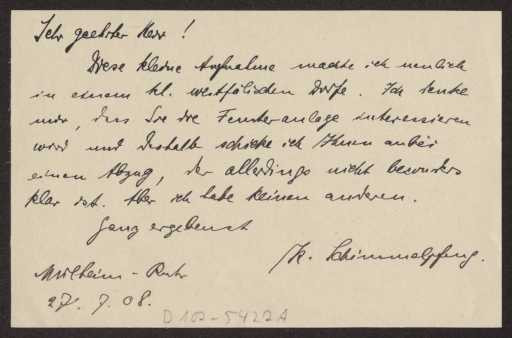 Sehr geehrter Herr!
Diese kleine Aufnahme machte ich neulich
in einem kl. westfälischen Dorfe. Ich denke
mir, dass Sie die Fensteranlage interessieren
wird und deshalb schicke ich Ihnen anbei
einen Abzug, der allerdings nicht besonders
klar ist. Aber ich habe keinen anderen.
Ganz ergebenst
K. Schimmelpfeng.
Mülheim-Ruhr
27. 7. 08.
D 102-5422A